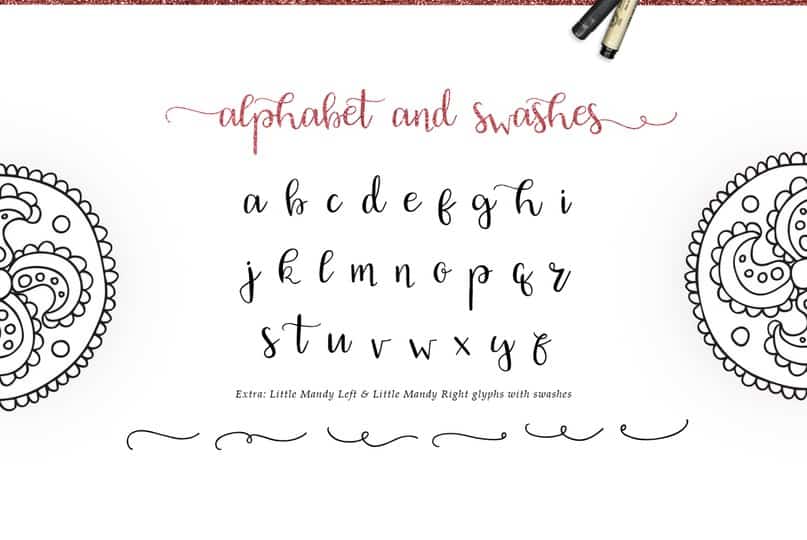 alphabet and swashes
a b c d e f g h i
j k l m n o p q r
s t u v w x y z
Extra: Little Mandy Left & Little Mandy Right glyphs with swashes